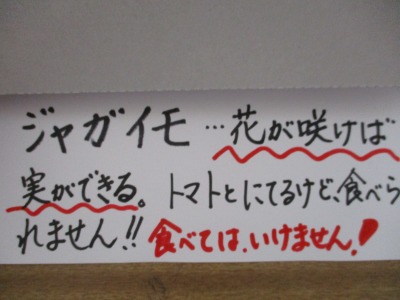 ジャガイモ…花が咲けば
実ができる。トマトとにてるけど、食べら
れません!!食べては、いけません!